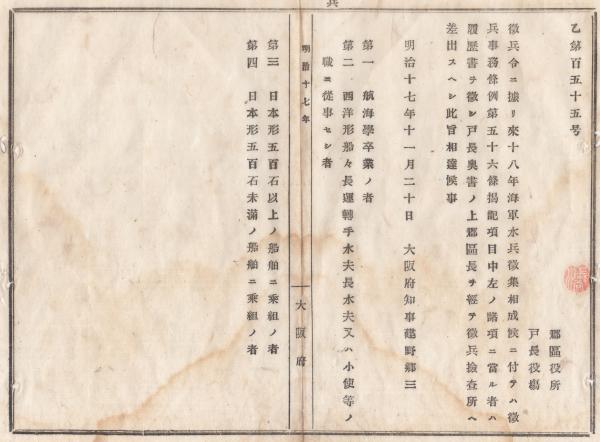 兵
乙第百五十五号
郡區役所
戸長役塲
徴兵令ニ據リ來十八年海軍水兵徴集相成候ニ付テハ徴
兵事務條例第五十六條揭記項目中左ノ諸項ニ當ル者ハ
履歴書ヲ徴シ戸長奥書ノ上郡區長ヲ經テ徴兵撿査所ヘ
差出スヘシ此旨相達候事
明治十七年十一月二十日　大阪府知事建野郷三
第一　航海學卒業ノ者
第二　西洋形船々長運轉手水夫長水夫又ハ小使等ノ
職ニ從事セシ者
明治十七年　大阪府
第三　日本形五百石以上ノ船舶ニ乘組ノ者
第四　日本形五百石未滿ノ船舶ニ乘組ノ者